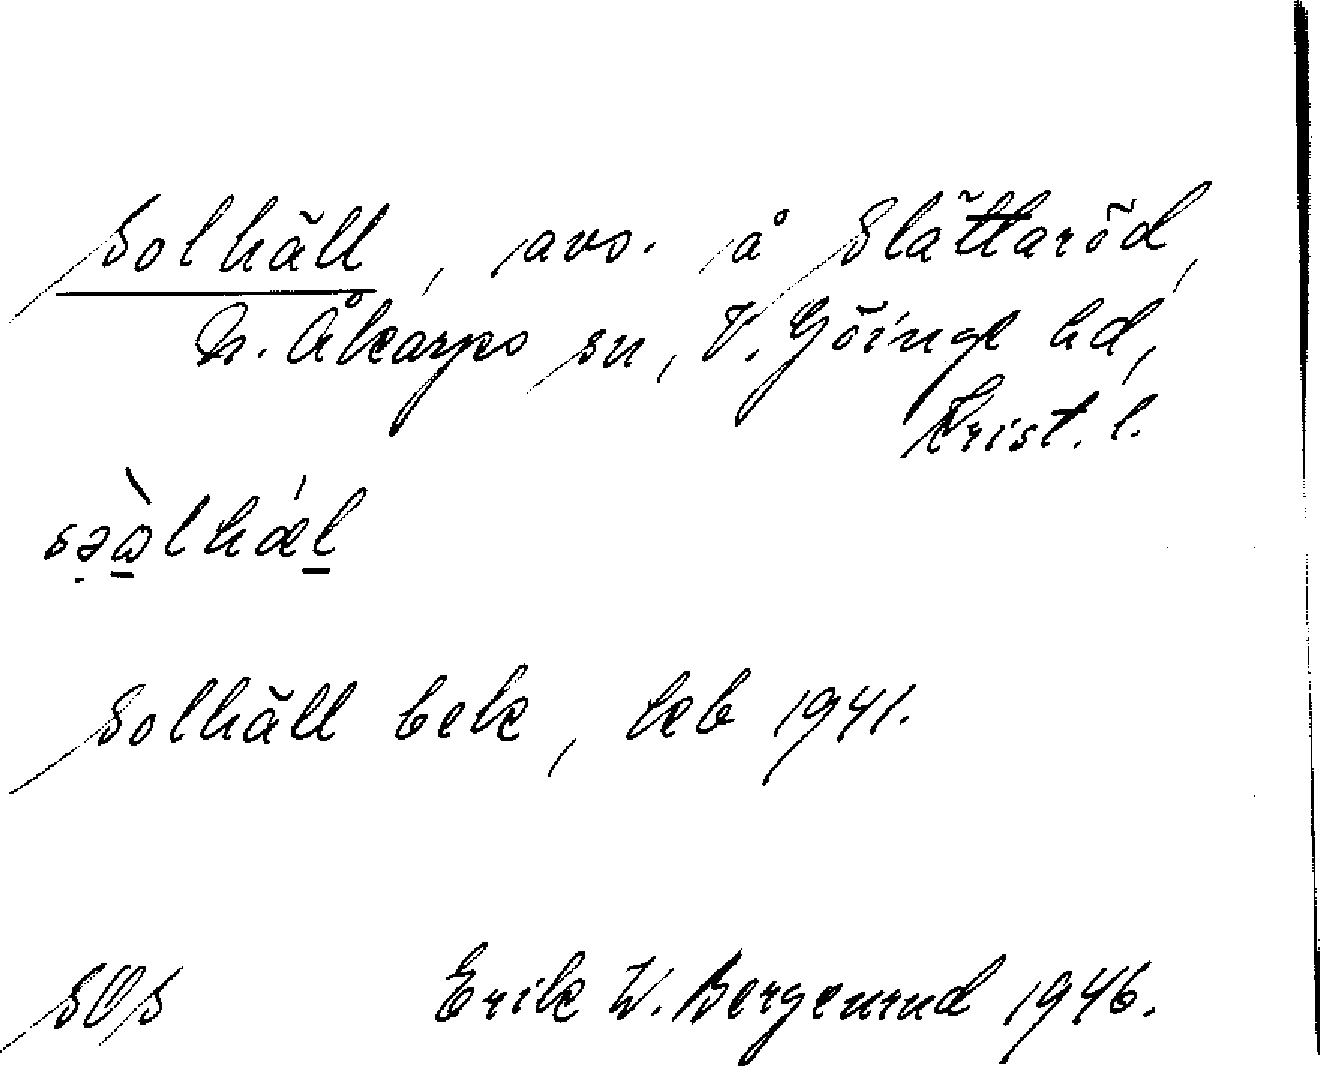 Solhäll, avs. å Slättaröd,
N. Åkarps sn, V. Göinge hd,
Krist. l.
Solhäll bek, kb 1941.
SOS Erik W. Bergenrud 1946.